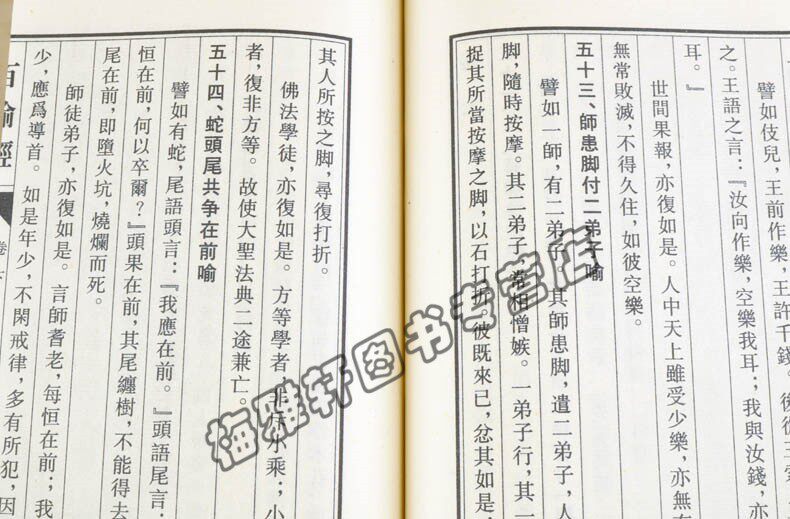 譬如伎兒，王前作樂，王許千錢。後從王索
之。王語之言：『汝向作樂，空樂我耳；我與汝錢，亦
耳。』
世間果報，亦復如是。人中天上雖受少樂，亦無有
無常敗滅，不得久住，如彼空樂。
五十三、師患脚付二弟子喻
譬如一師，有二弟子。其師患脚，遣二弟子，人
脚，隨時按摩。其二弟子，常相憎嫉。一弟子行，其一
捉其所當按摩之脚，以石打折。彼既來已，忿其如是，
其人所按之脚，尋復打折。
佛法學徒，亦復如是。方等學者，非斥小乘；小
者，復非方等。故使大聖法典二途兼亡。
五十四、蛇頭尾共争在前喻
譬如有蛇，尾語頭言：『我應在前。』頭語尾言：
恒在前，何以卒爾？』頭果在前，其尾纏樹，不能得去
尾在前，即墮火坑，燒爛而死。
師徒弟子，亦復如是。言師耆老，每恒在前；我
少，應爲導首。如是年少，不閑戒律，多有所犯，因
百喻經
卷
梅雅轩图书专营店